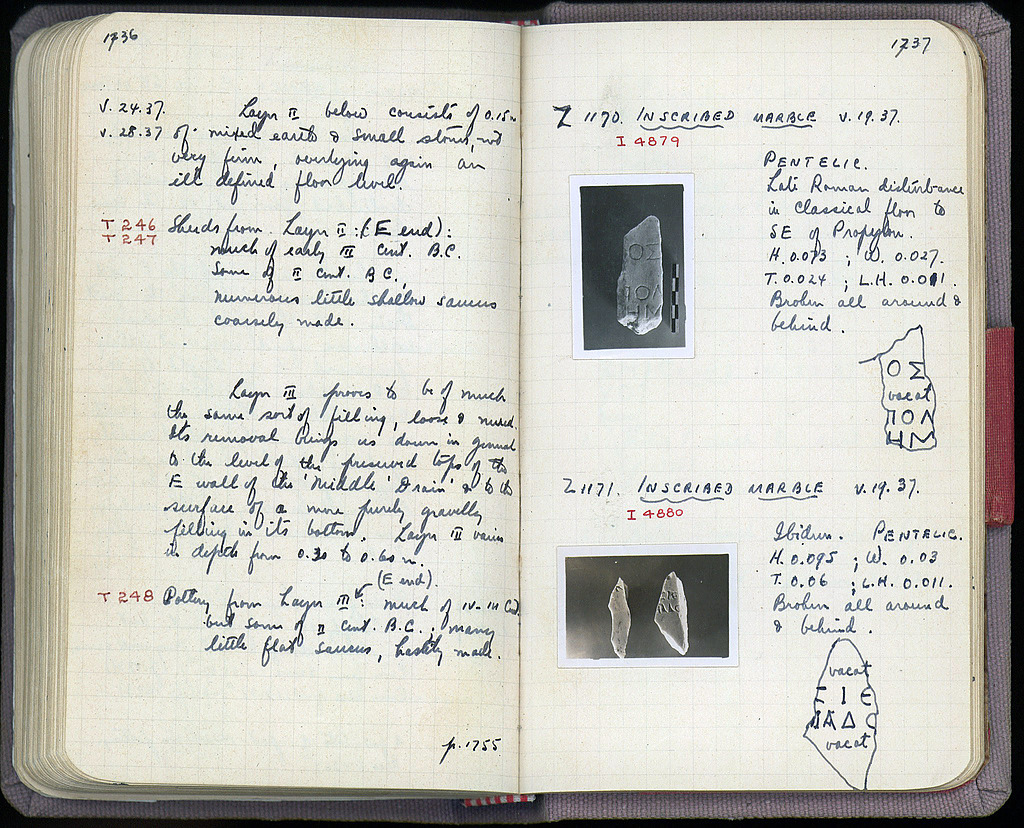 1736
V. 24.37. Layer II below consists of 0.15m
V. 28.37 of mixed earth & small stones, not
very firm, overlying again an
ill defined floor level.
T 246 Sherds from Layer II: (E end):
T 247 much of early III cent. B.C.
Some of II cent. B.C.,
numerous little shallow saucers
coarsely made.
Layer III proves to be of much
the same sort of filling, loose & mixed.
Its removal brings us down in general
to the level of the preserved tops of the
E wall of the 'Middle' Drain' & to the
surface of a more purely gravelly
filling in its bottom. Layer III varies
in depth from 0.30 to 0.60 m.
(E end).
T 248 Pottery from Layer III: much of IV-III Cent
but some of II cent. B.C.; many
little flat saucers, hastily made.
p. 1755
1737
Z 1170. INSCRIBED MARBLE V.19.37.
I 4879
PENTELIC.
Late Roman disturbance
in Classical floor to
SE of Propylon.
H. 0.073 ; W. 0.027.
T. 0.024 ; L.H. 0.011.
Broken all around &
behind.
ΟΣ
ΠΟΛ
ΗΜ
ΟΣ
vacat
ΠΟΛ
ΗΜ
Z 1171. INSCRIBED MARBLE V.19.37.
I 4880
Ibidem. PENTELIC.
H. 0.095 ; W. 0.03
T. 0.06 ; L.H. 0.011.
Broken all around
& behind.
vacat
Γ Ι Ε
ΠΑΔΟ
vacat